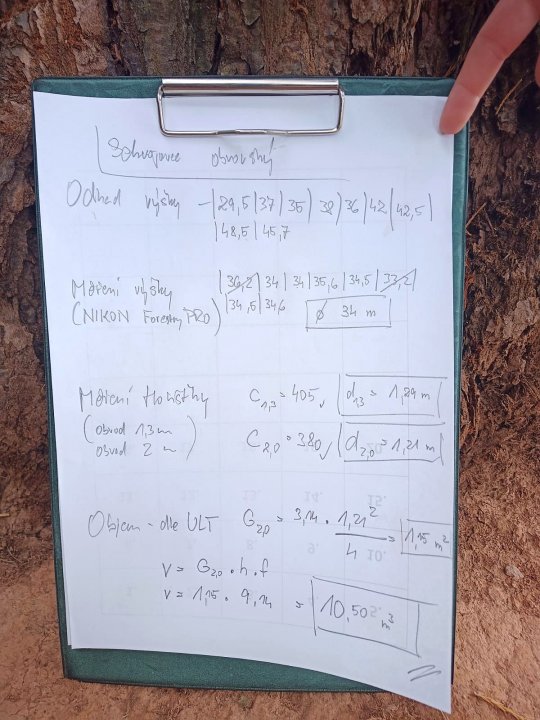 Sekvojovec obrovský
Odhad výšky – |29,5|37|35|38|36|42|42,5|
|48,5|45,7
Měření výšky |36,2|34|34|35,6|34,5|33,2|
(NIKON Forestry PRO) |34,5|34,6 ø 34 m
Měření tloušťky C1,3 = 405 d1,3 = 1,29 m
(obvod 1,3 m
obvod 2 m) C2,0 = 380 d2,0 = 1,21 m
Objem - dle ULT G2,0 = 3,14 · 1,21² / 4 = 1,15 m²
V = G2,0 · h · f
V = 1,15 · 9,14 = 10,50 m³